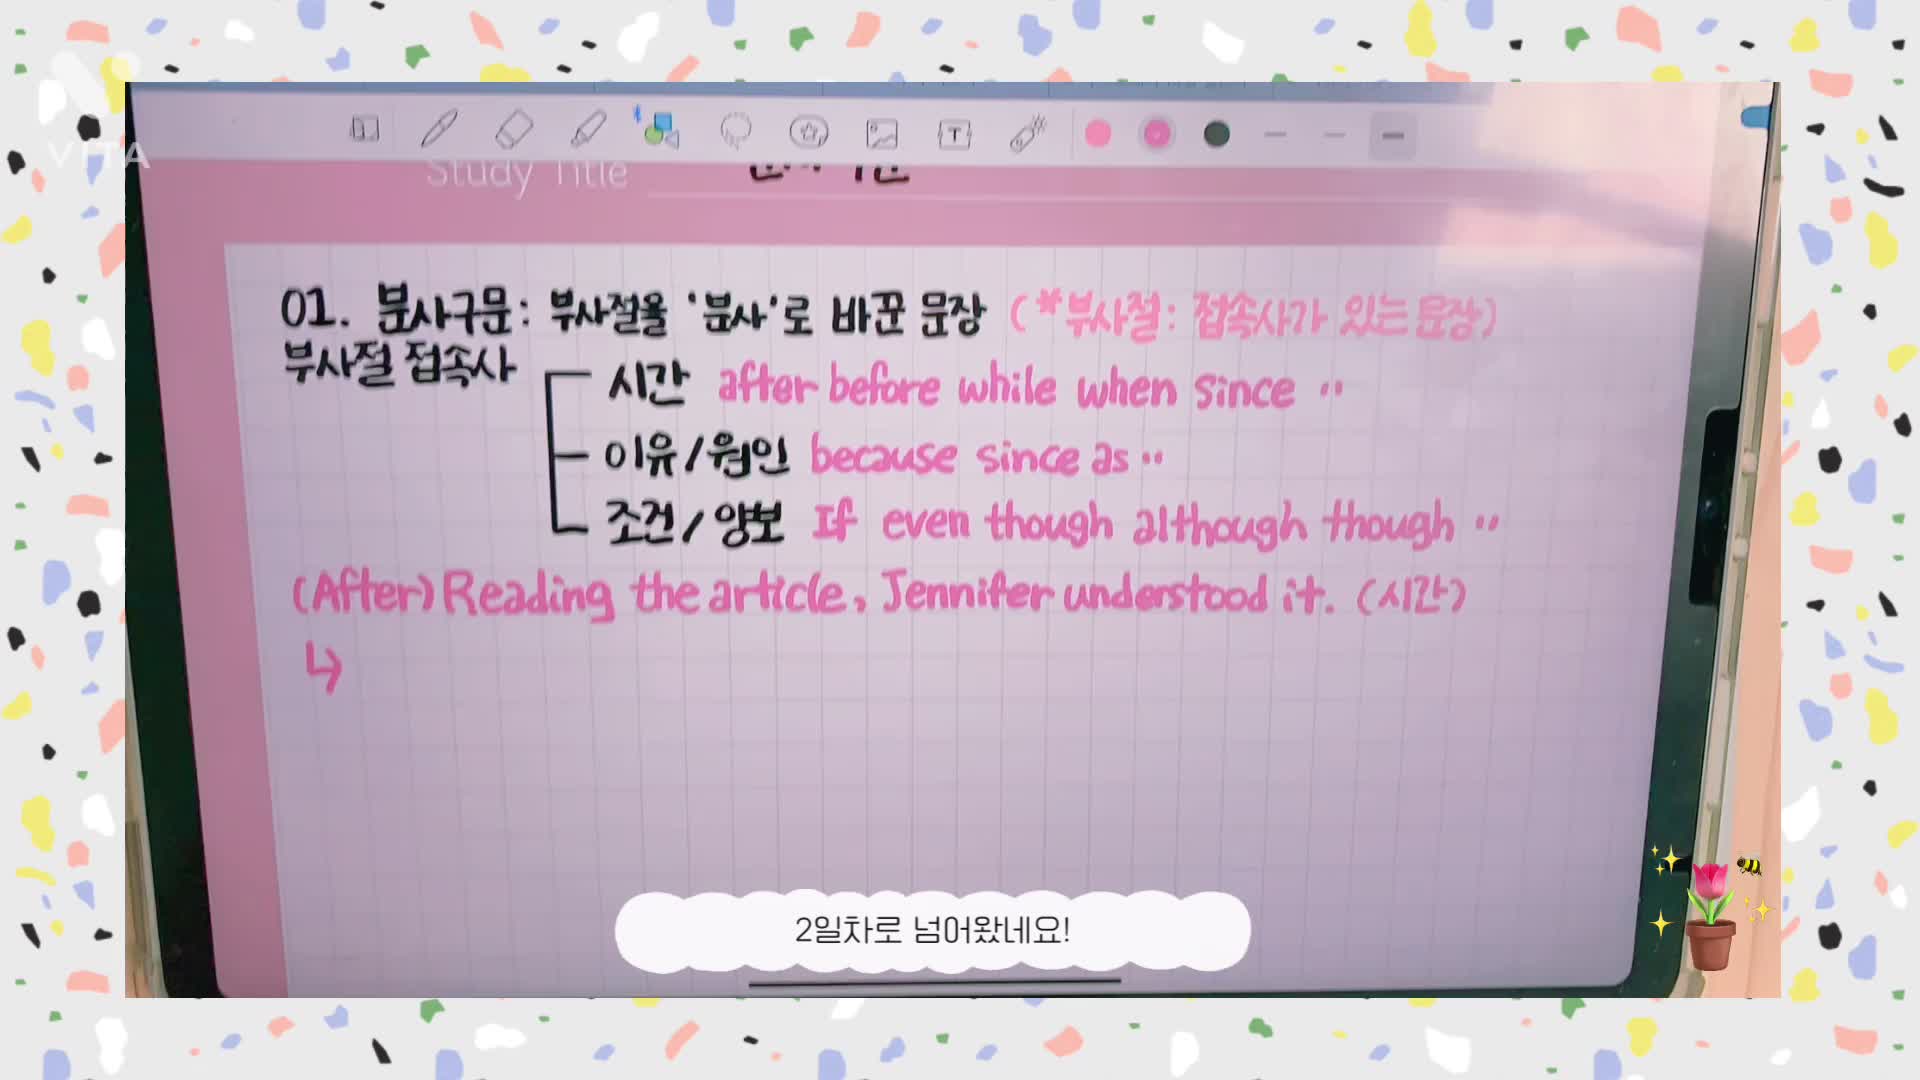 VITA
Study Title
01. 분사구문: 부사절을 '분사'로 바꾼 문장 (*부사절: 접속사가 있는 문장)
부사절 접속사
시간 after before while when since ..
이유/원인 because since as ..
조건/양보 If even though although though ..
(After) Reading the article, Jennifer understood it. (시간)
↳
2일차로 넘어왔네요!